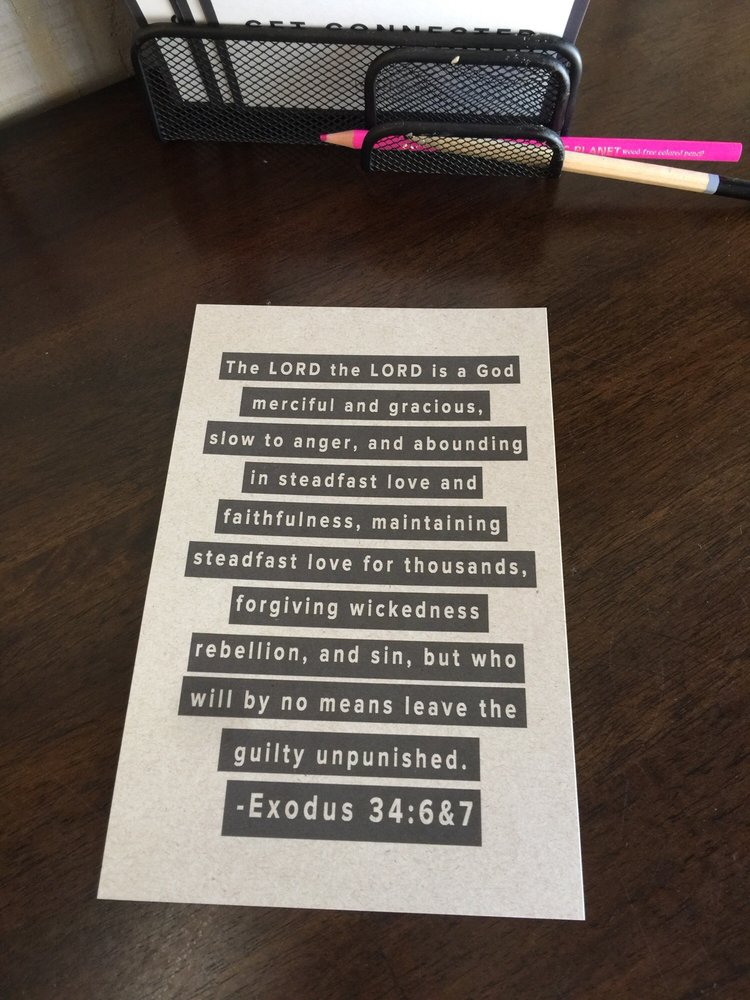 GET CONNECTED
PLANET wood-free colored pencil
The LORD the LORD is a God
merciful and gracious,
slow to anger, and abounding
in steadfast love and
faithfulness, maintaining
steadfast love for thousands,
forgiving wickedness
rebellion, and sin, but who
will by no means leave the
guilty unpunished.
-Exodus 34:6&7